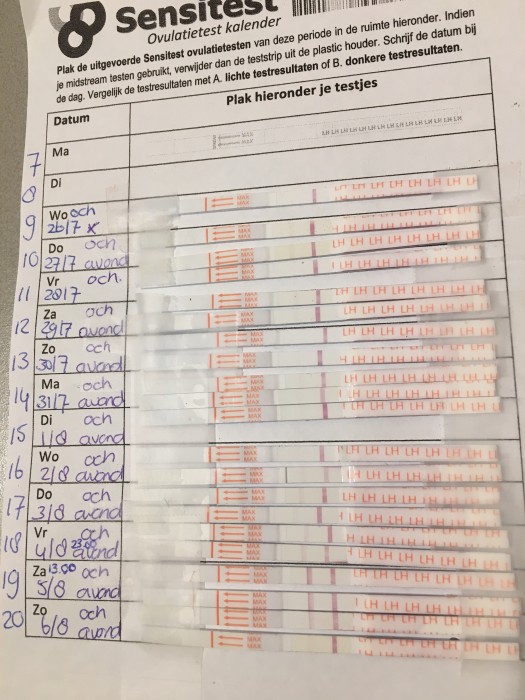 Sensitest
Ovulatietest kalender
Plak de uitgevoerde Sensitest ovulatietesten van deze periode in de ruimte hieronder. Indien
je midstream testen gebruikt, verwijder dan de teststrip uit de plastic houder. Schrijf de datum bij
de dag. Vergelijk de testresultaten met A. lichte testresultaten of B. donkere testresultaten.
Datum Plak hieronder je testjes
7 Ma MAX LH LH LH LH LH LH LH LH LH LH LH
8 Di
MAX LH LH LH LH LH LH LH
9 Wo och
26/7 x MAX LH LH LH LH LH LH
10 Do och MAX LH LH LH LH LH LH LH
27/7 avond MAX LH LH LH LH LH LH
11 Vr och. MAX LH LH LH LH LH LH
28/7 MAX LH LH LH LH LH LH
12 Za och
29/7 avond MAX LH LH LH LH LH LH
13 Zo och
30/7 avond MAX LH LH LH LH LH LH
14 Ma och MAX LH LH LH LH LH LH
31/7 avond MAX LH LH LH LH LH LH
15 Di och
1/8 avond
16 Wo och MAX LH LH LH LH LH LH
2/8 avond MAX LH LH LH LH LH LH
17 Do och MAX LH LH LH LH LH LH
3/8 avond MAX LH LH LH LH LH LH
18 Vr och MAX LH LH LH LH LH LH
4/8 23.00 avond MAX LH LH LH LH LH LH
19 Za 13.00 och MAX LH LH LH LH LH LH
5/8 avond MAX LH LH LH LH LH LH
20 Zo och MAX LH LH LH LH LH LH
6/8 avond MAX LH LH LH LH LH LH